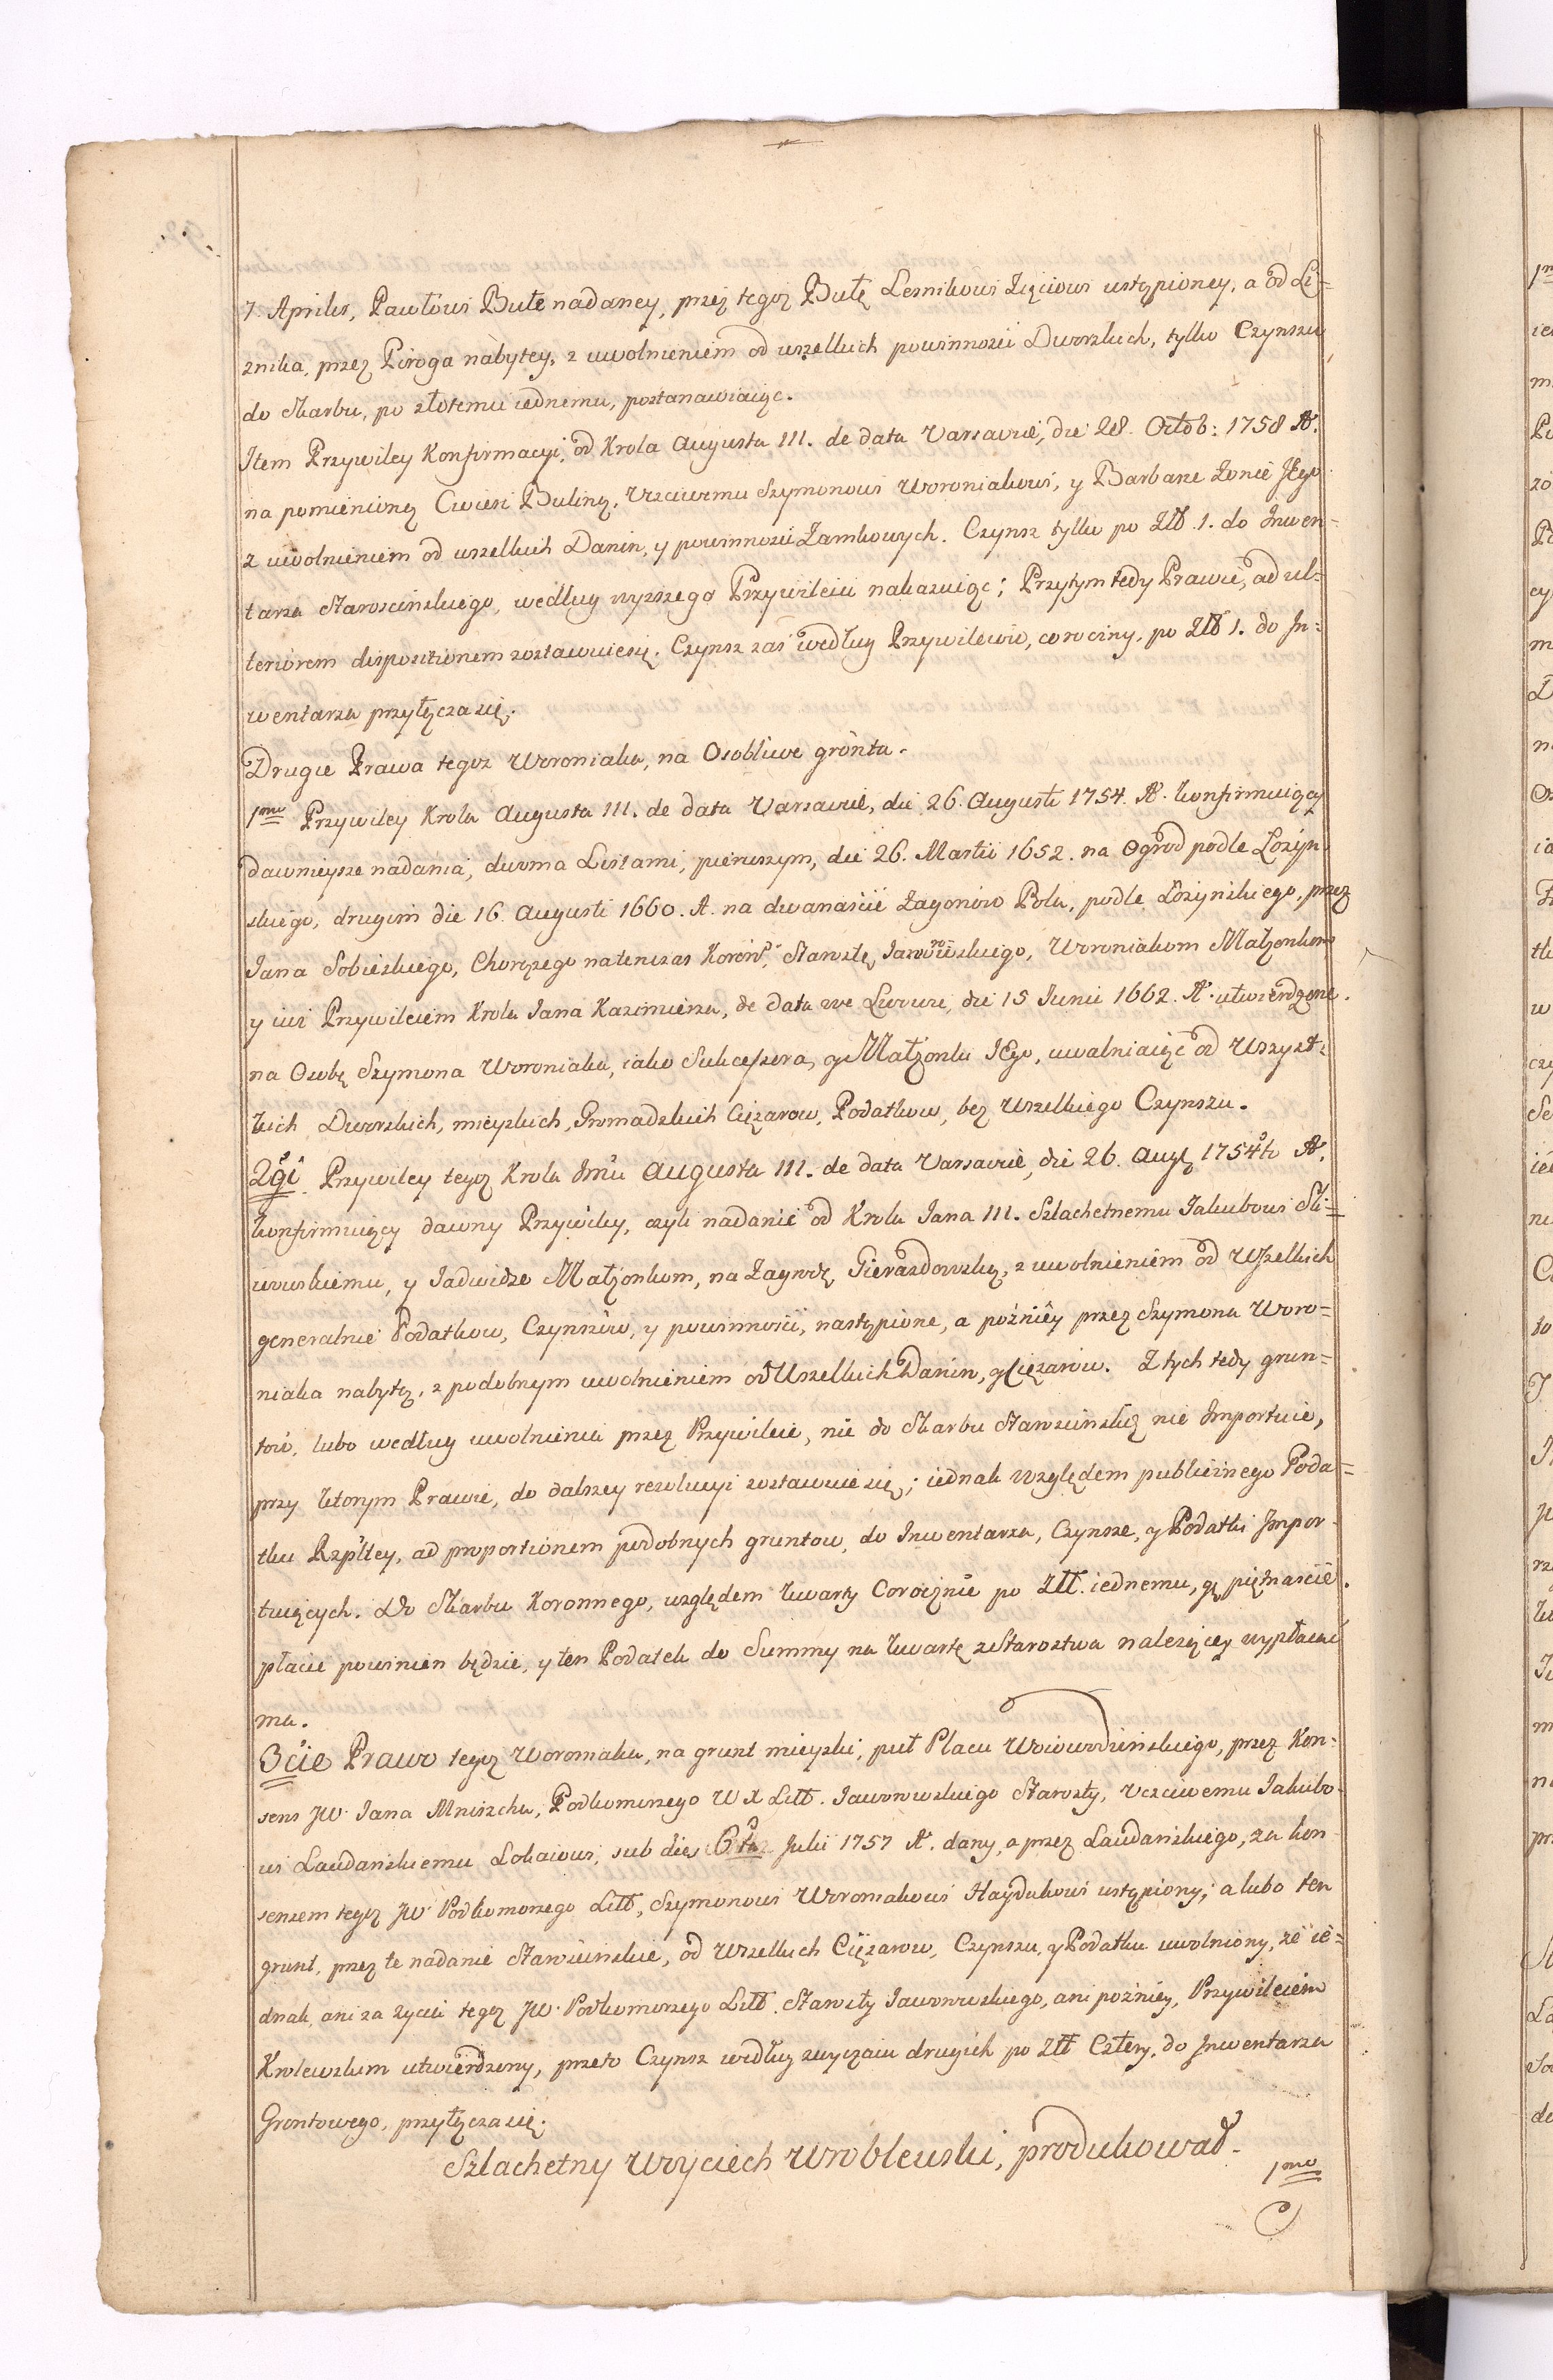 7. Aprilis, Pawłowi Bule nadaney, przez tegoż Bułę Lesnikowi Zięciowi ustąpioney, a od Le=
znika, przez Piroga nabytey, z uwolnieniem od wszelkich powinności Dworskich, tylko Czynszu
do Skarbu, po złotemu iednemu, postanawiaiąc.
Item Przywiley Konfirmacyi, od Krola Augusta III. de data Varsaviæ, die 28. Octob: 1758 A.
na pomienioną Cwierć Bulinę, Uczciwemu Szymonowi Woroniakowi, y Barbarze Zonie JEgo
z uwolnieniem od wszelkich Danin, y powinności Zamkowych. Czynsz tylko po Złł. 1. do Inwen=
tarza Starościnskiego, według wyższego Przywileiu nakazuiąc; Przytym tedy Prawie, ad ul=
teriorem dispositionem zostawuiesię. Czynsz zaś według Przywilewu, coroczny, po Złł 1. do In=
wentarza przyłączasię.
Drugie Prawa tegoż Woroniaka, na Osobliwe gronta.
1mo Przywiley Krola Augusta III. de data Varsaviæ, die 26. Augusti 1754. A. konfirmuiący
dawnieysze nadania, dwoma Listami, pierwszym, die 26. Martii 1652. na Ogrod podle Łozyn
skiego, drugim die 16. Augusti 1660. A. na dwanaście Zagonow Pola, podle Łozynskiego, przez
Jana Sobieskiego, Chorążego natenczas Koron: Starostę Jaworowskiego, Woroniakom Małżonkom
y iuż Przywileiem Krola Jana Kazimierza, de data we Lwowie, die 15 Junii 1662. A. utwierdzone.
na Osobę Szymona Woroniaka, iako Sukcessora, y Małżonki JEgo, uwalniaiąc od Wszyst=
kich Dworskich, mieyskich, Gromadzkich Ciężarow, Podatkow, bez Wszelkiego Czynszu.
2gi. Przywiley tegoż Krola Jmci Augusta III. de data Varsaviæ, die 26. Aug. 1754to A.
konfirmuiący dawny Przywiley, czyli nadanie od Krola Jana III. Szlachetnemu Jakubowi Sli=
wowskiemu, y Jadwidze Małżonkom, na Zagrodę Gierazdowską, z uwolnieniem od Wszelkich
generalnie Podatkow, Czynszow, y powinności, nastąpione, a poźniey przez Szymona Woro=
niaka nabytą, z podobnym uwolnieniem od Wszelkich Danin, y Ciężarow. Z tych tedy grun=
tow, lubo według uwolnienia przez Przywileie, nic do Skarbu Starościnskię nie Importuie,
przy ktorym Prawie, do dalszey rezolucyi zostawuie się; iednak względem publicznego Poda=
tku Rzpltey, ad proportionem podobnych gruntow, do Inwentarza, Czynsze, y Podatki Impor=
tuiących. Do Skarbu Koronnego, względem kwarty Corocznie po Złł. iednemu, gr piętnaście.
płacić powinien będzie, y ten Podatek do Summy na kwartę z Starostwa należącey wypłacać
ma.
3cie Prawo tegoż Woroniaka, na grunt mieyski, puł Placu Woiewodzinskiego, przez Kon=
sens JW. Jana Mniszcha, Podkomorzego W X Litt. Jaworowskiego Starosty, Uczciwemu Jakubo=
wi Laudanskiemu Lokaiowi, sub die 6ta Julii 1757 A. dany, a przez Laudanskiego, za kon
sensem tegoż JW. Podkomorzego Litt, Szymonowi Woroniakowi Haydukowi ustąpiony; a lubo ten
grunt, przez te nadanie Starościnskie, od Wszelkich Ciężarow, Czynszu, y Podatku uwolniony, że ie=
dnak, ani za życia tegoż JW. Podkomorzego Litt. Starosty Jaworowskiego, ani poźniey, Przywileiem
Krolewskim utwierdzony, przeto Czynsz według zwyczaiu drugich po Złł Cztery, do Inwentarza
Grontowego, przyłączasię.
Szlachetny Woyciech Wroblewski, produkował.
1mo